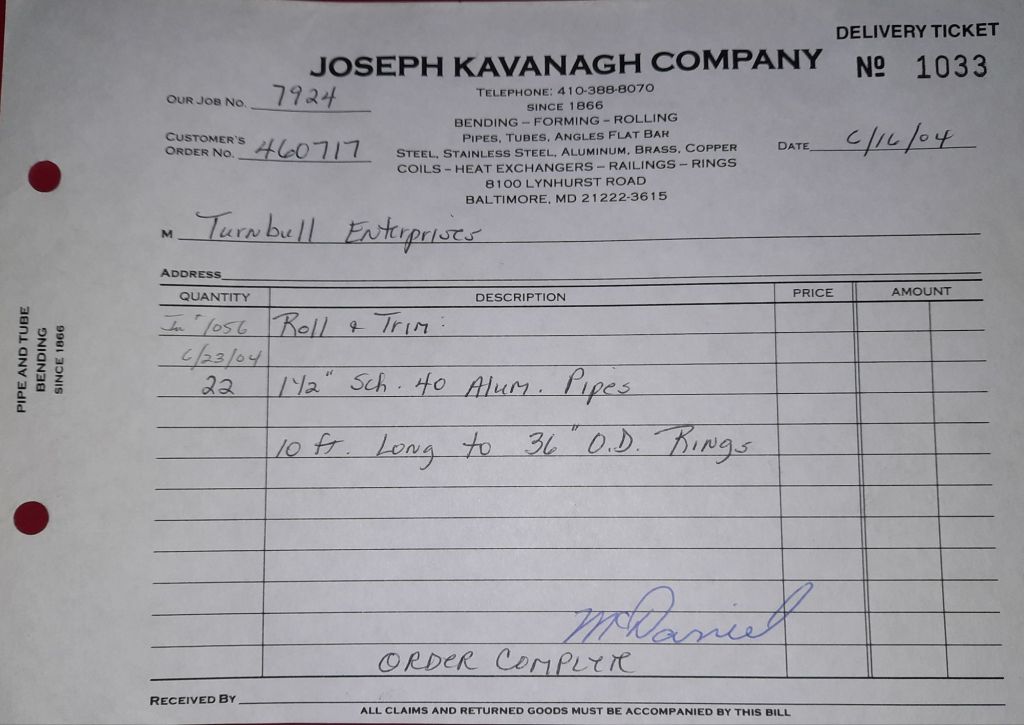 DELIVERY TICKET
JOSEPH KAVANAGH COMPANY Nº 1033
OUR JOB NO. 7924
TELEPHONE: 410-388-8070
SINCE 1866
BENDING – FORMING – ROLLING
CUSTOMER'S
ORDER NO. 460717
PIPES, TUBES, ANGLES FLAT BAR
STEEL, STAINLESS STEEL, ALUMINUM, BRASS, COPPER
DATE 6/16/04
COILS – HEAT EXCHANGERS – RAILINGS – RINGS
8100 LYNHURST ROAD
BALTIMORE, MD 21222-3615
M Turnbull Enterprises
ADDRESS
QUANTITY DESCRIPTION PRICE AMOUNT
In # 1056 Roll & Trim:
6/23/04
22 1 1/2" Sch. 40 Alum. Pipes
10 ft. Long to 36" O.D. Rings
McDaniel
ORDER COMPLETE
RECEIVED BY
ALL CLAIMS AND RETURNED GOODS MUST BE ACCOMPANIED BY THIS BILL
PIPE AND TUBE
BENDING
SINCE 1866